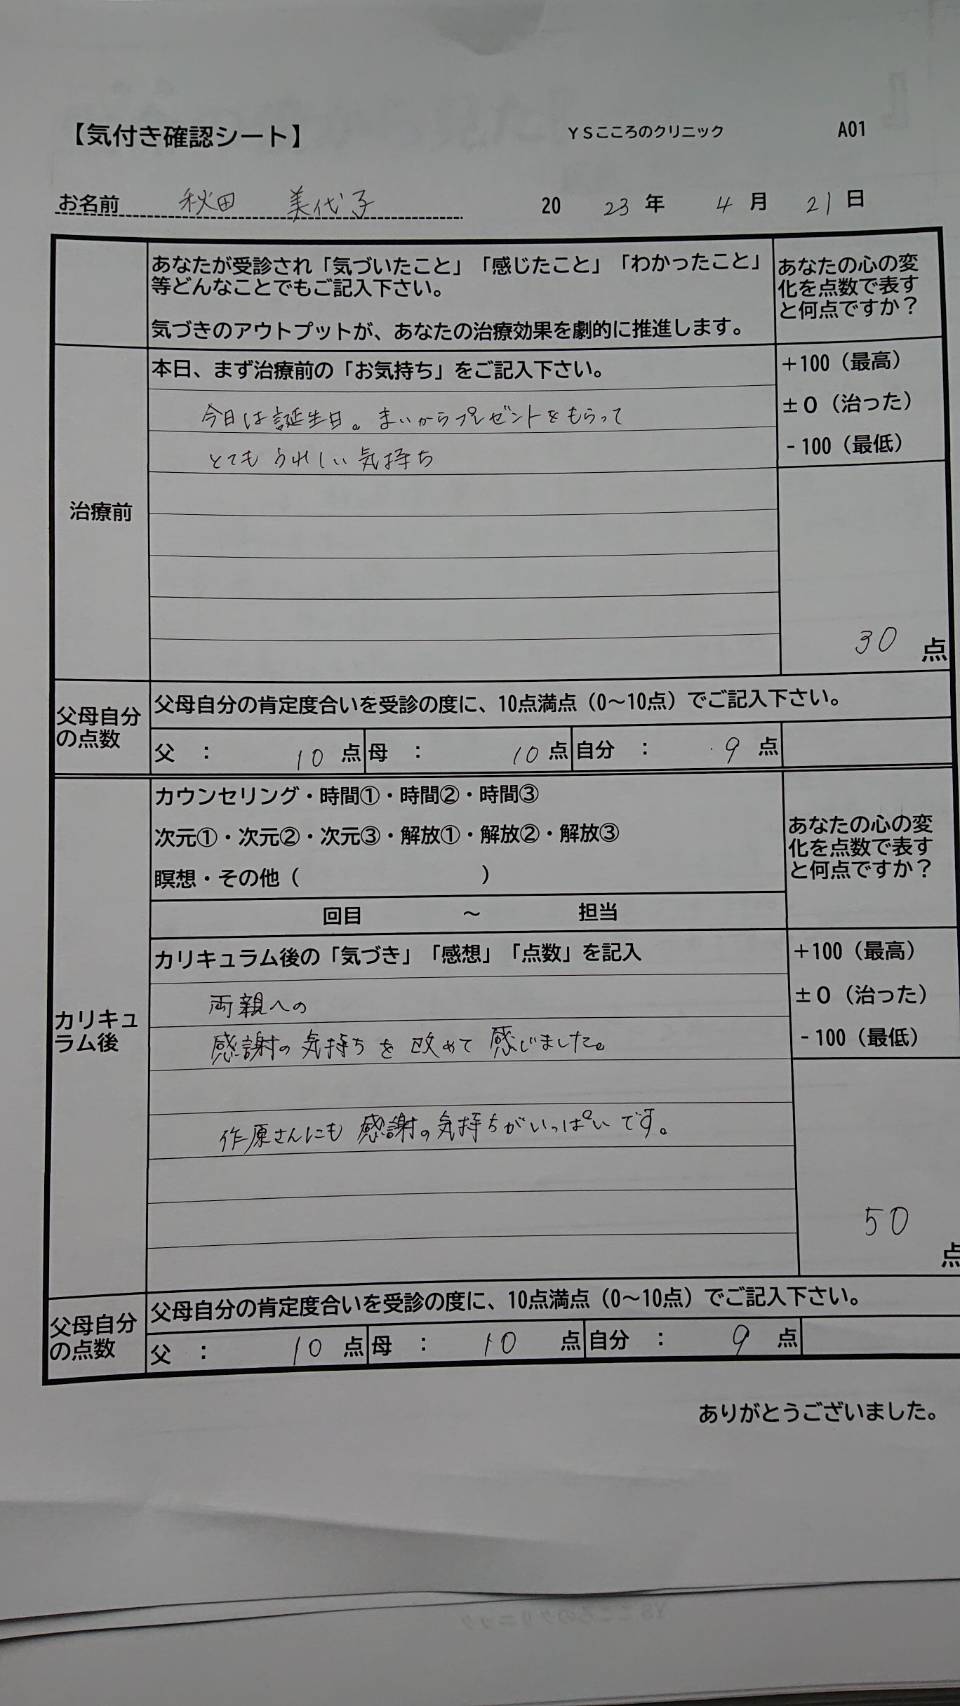 【気付き確認シート】 YSこころのクリニック A01
お名前 秋田 美代子 20 23 年 4 月 21 日
あなたが受診され「気づいたこと」「感じたこと」「わかったこと」
等どんなことでもご記入下さい。
気づきのアウトプットが、あなたの治療効果を劇的に推進します。
あなたの心の変
化を点数で表す
と何点ですか？
治療前
本日、まず治療前の「お気持ち」をご記入下さい。
今日は誕生日。まいからプレゼントをもらって
とてもうれしい気持ち
+100（最高）
±0（治った）
-100（最低）
30 点
父母自分
の点数
父母自分の肯定度合いを受診の度に、10点満点（0～10点）でご記入下さい。
父 ： 10 点 母 ： 10 点 自分 ： 9 点
カリキュ
ラム後
カウンセリング・時間①・時間②・時間③
次元①・次元②・次元③・解放①・解放②・解放③
瞑想・その他（ ）
回目 ～ 担当
あなたの心の変
化を点数で表す
と何点ですか？
カリキュラム後の「気づき」「感想」「点数」を記入
両親への
感謝の気持ちを改めて感じました。
作原さんにも感謝の気持ちがいっぱいです。
+100（最高）
±0（治った）
-100（最低）
50 点
父母自分
の点数
父母自分の肯定度合いを受診の度に、10点満点（0～10点）でご記入下さい。
父 ： 10 点 母 ： 10 点 自分 ： 9 点
ありがとうございました。